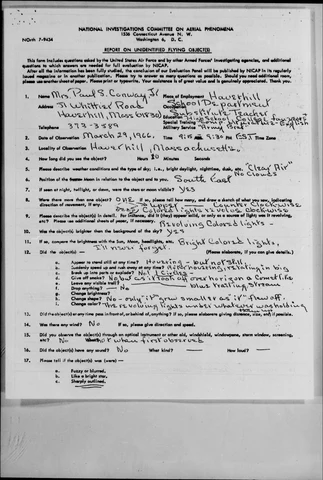 NATIONAL INVESTIGATIONS COMMITTEE ON AERIAL PHENOMENA
1536 Connecticut Avenue N. W.
Washington 6, D. C.
REPORT ON UNIDENTIFIED FLYING OBJECT(S)
This form includes questions asked by the United States Air Force and by other Armed Forces' investigating agencies, and additional questions to which answers are needed for full evaluation by NICAP.
After all the information has been fully studied, the conclusion of our Evaluation Panel will be published by NICAP in its regularly issued magazine or in another publication. Please try to answer as many questions as possible. Should you need additional room, please use another sheet of paper. Print or typewrite. Your assistance is of great value and is genuinely appreciated. Thank you.
1. Name Mrs Paul S. Conway Jr Place of Employment Haverhill
Address 31 Whittier Road School Department
Haverhill, Mass 01830 Occupation Substitute Teacher
Education
Special Training English
Telephone 373-3589 Military Service
2. Date of Observation March 29, 1966. Time 9:15 9:30 EST Time Zone
3. Locality of Observation Haverhill, Massachusetts.
4. How long did you see the object? Hours 20 Minutes Seconds
5. Please describe weather conditions and the type of sky; i.e., bright daylight, nighttime, dusk, etc. "Clear Air" No Clouds
6. Position of the Sun or Moon in relation to the object and to you. South East
7. If seen at night, twilight, or dawn, were the stars or moon visible? yes
8. Were there more than one object? ONE If so, please tell how many, and draw a sketch of what you saw, indicating direction of movement, if any.
Counter Clockwise
Colored lights revolve clockwise
9. Please describe the object(s) in detail. For instance, did it (they) appear solid, or only as a source of light; was it revolving, etc.? Please use additional sheets of paper, if necessary.
Revolving Colored lights
10. Was the object(s) brighter than the background of the sky? yes
11. If so, compare the brightness with the Sun, Moon, headlights, etc. Bright Colored lights,
I'll never forget.
12. Did the object(s) — (Please elaborate, if you can give details.)
a. Appear to stand still at any time? Housing - but not still.
b. Suddenly speed up and rush away at any time? After housing, rotating in big
c. Break up into parts or explode? No! circles
d. Give off smoke? No but as it took off over horizon a Comet like
e. Leave any visible trail? blue trailing stream
f. Drop anything? No
g. Change brightness? No
h. Change shape? No - only "it" grew smaller as it flew off.
i. Change color? The revolving lights
13. Did object(s) at any time pass in front of, or behind of, anything? If so, please elaborate giving distance, size, etc, if possible.
14. Was there any wind? No If so, please give direction and speed.
15. Did you observe the object(s) through an optical instrument or other aid, windshield, windowpane, storm window, screening, etc? No What? not when first observed
16. Did the object(s) have any sound? No What kind? — How loud? —
17. Please tell if the object(s) was (were) —
a. Fuzzy or blurred.
b. Like a bright star.
c. Sharply outlined.